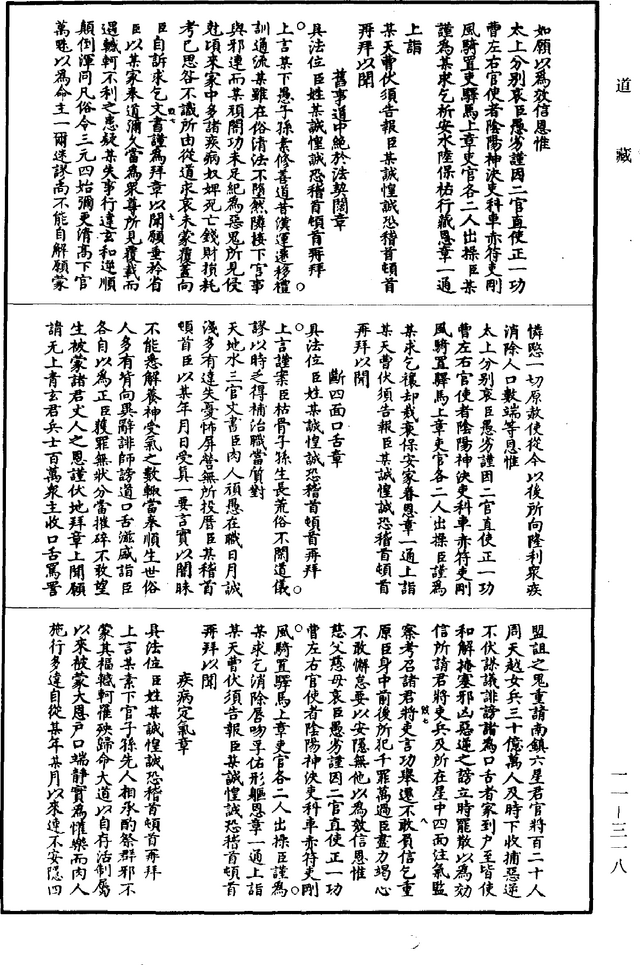 道藏
如願以為效信恩惟
太上分別哀臣愚劣謹因二官直使正一功
曹左右官使者陰陽神決吏科車赤符吏剛
風騎置吏驛馬上章吏官各二人出操臣某
謹為某求乞祈安水陸保祐行藏恩章一通
上詣
某天曹伏須告報臣某誠惶誠恐稽首頓首
再拜以聞
舊事道中絕於法契闊章
具法位臣姓某誠惶誠恐稽首頓首再拜
上言某下愚子孫素修善道昔漢運遷移禮
訓通流某雖在俗清法不墮然隣接下官事
與邪連而某頑闇功未足紀為惡鬼所見侵
尅頃來家中多諸疾病奴婢死亡錢財損耗
考已思咎不識所由從道求哀未蒙覆蓋向
臣自訴求乞文書謹為拜章以聞願垂矜省
臣以某家奉道彌久當為衆尊所見覆載而
遇轗軻不利之患疑某失事行違玄和逆順
顛倒渾同凡俗令三元四始彌更清高下官
萬甿以為命主一爾迷謬尚不能自解願蒙
憐愍一切原赦使從今以後所向隆利衆疾
消除人口數端等恩惟
太上分別哀臣愚劣謹因二官直使正一功
曹左右官使者陰陽神決吏科車赤符吏剛
風騎置驛馬上章吏官各二人出操臣謹為
某求乞禳却災衰保安家眷恩章一通上詣
某天曹伏須告報臣某誠惶誠恐稽首頓首
再拜以聞
斷四面口舌章
具法位臣姓某誠惶誠恐稽首頓首再拜
上言謹案臣枯骨子孫生長荒俗不閑道儀
謬以時乏得補治職當質對
天地水三官文書臣肉人頑愚在職日月誠
淺多有違失憂怖屏營無所投厝臣某稽首
頓首臣以某年月日受真一要言實以闇昧
不能悉解養神受氣之數輙當奉順生世俗
人多有背向異辭誹師謗道口舌滋盛詣臣
各自以為正臣獲罪無狀分當摧碎不敢望
生被蒙諸君丈人之恩謹伏地拜章上聞願
請无上青玄君兵士百萬衆主收口舌罵詈
盟詛之鬼重請南鎮六星君官將百二十人
周天越女兵三十億萬人及時下收捕惡逆
不伏謀議誹謗諸為口舌者家到戶至皆使
和解掩塞邪凶惡逆之謗立時罷散以為効
信所請君將吏兵及所在星中四面注氣監
察考召諸君將吏言功舉遷不敢負信乞重
原臣身中前後所犯千罪萬過臣盡力竭心
不敢懈怠要以安隱無他以為效信恩惟
慈父慈母哀臣愚劣謹因二官直使正一功
曹左右官使者陰陽神決吏科車赤符吏剛
風騎置驛馬上章吏官各二人出操臣謹為
某求乞消除唇吻孚佑形軀恩章一通上詣
某天曹伏須告報臣某誠惶誠恐稽首頓首
再拜以聞
疾病定氣章
具法位臣姓某誠惶誠恐稽首頓首再拜
上言某素下官子孫先人相承酌祭群邪不
蒙其福轗軻罹殃歸命大道以自存活制屬
以來被蒙大恩戶口端靜實為懽樂而肉人
施行多違自從某年某月以來速不安隱四
一一－三一八